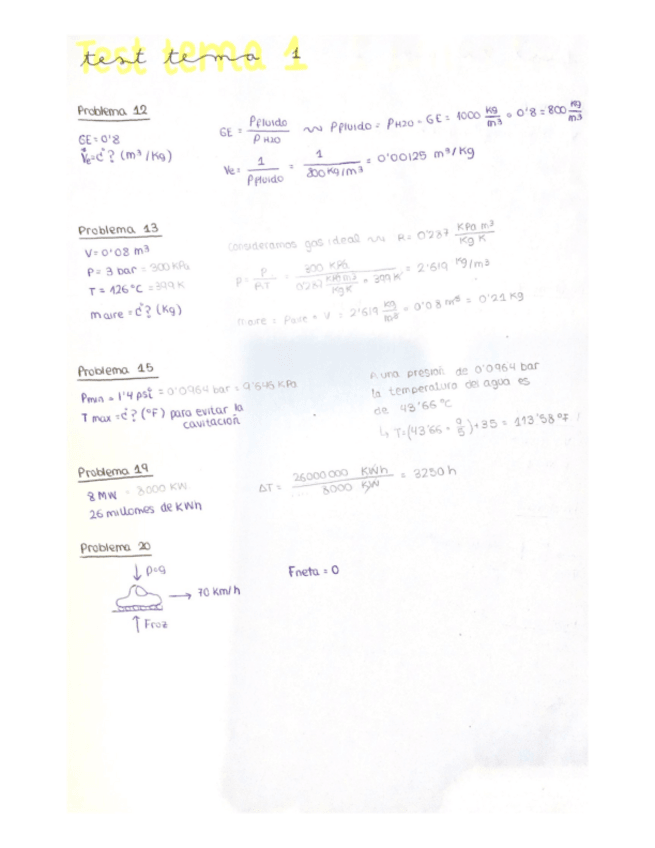 test tema 1
Problema 12
GE = 0'8
Ve = ¿? (m³/Kg)
GE = Pfluido / PH2O ~> Pfluido = PH2O · GE = 1000 kg/m³ · 0'8 = 800 kg/m³
Ve = 1 / Pfluido = 1 / 800 Kg/m³ = 0'00125 m³/kg
Problema 13
V = 0'08 m³
P = 3 bar = 300 KPa
T = 126 °C = 399 K
m aire = ¿? (Kg)
consideramos gas ideal ~> R = 0'287 KPa m³ / Kg K
P = P / RT = 300 KPa / 0'287 KPa m³ / Kg K · 399 K = 2'619 kg/m³
m aire = Paire · V = 2'619 kg/m³ · 0'08 m³ = 0'21 Kg
Problema 15
Pmin = 1'4 psi = 0'0964 bar = 9'645 KPa
T max = ¿? (°F) para evitar la
cavitación
A una presión de 0'0964 bar
la temperatura del agua es
de 43'66 °C
↳ T = (43'66 · 9/5) + 35 = 113'58 °F
Problema 19
8 MW = 8000 KW
26 millones de KWh
ΔT = 26000000 KWh / 8000 KW = 3250 h
Problema 20
↓ p=g
→ 70 km/h
↑ Froz
Fneta = 0